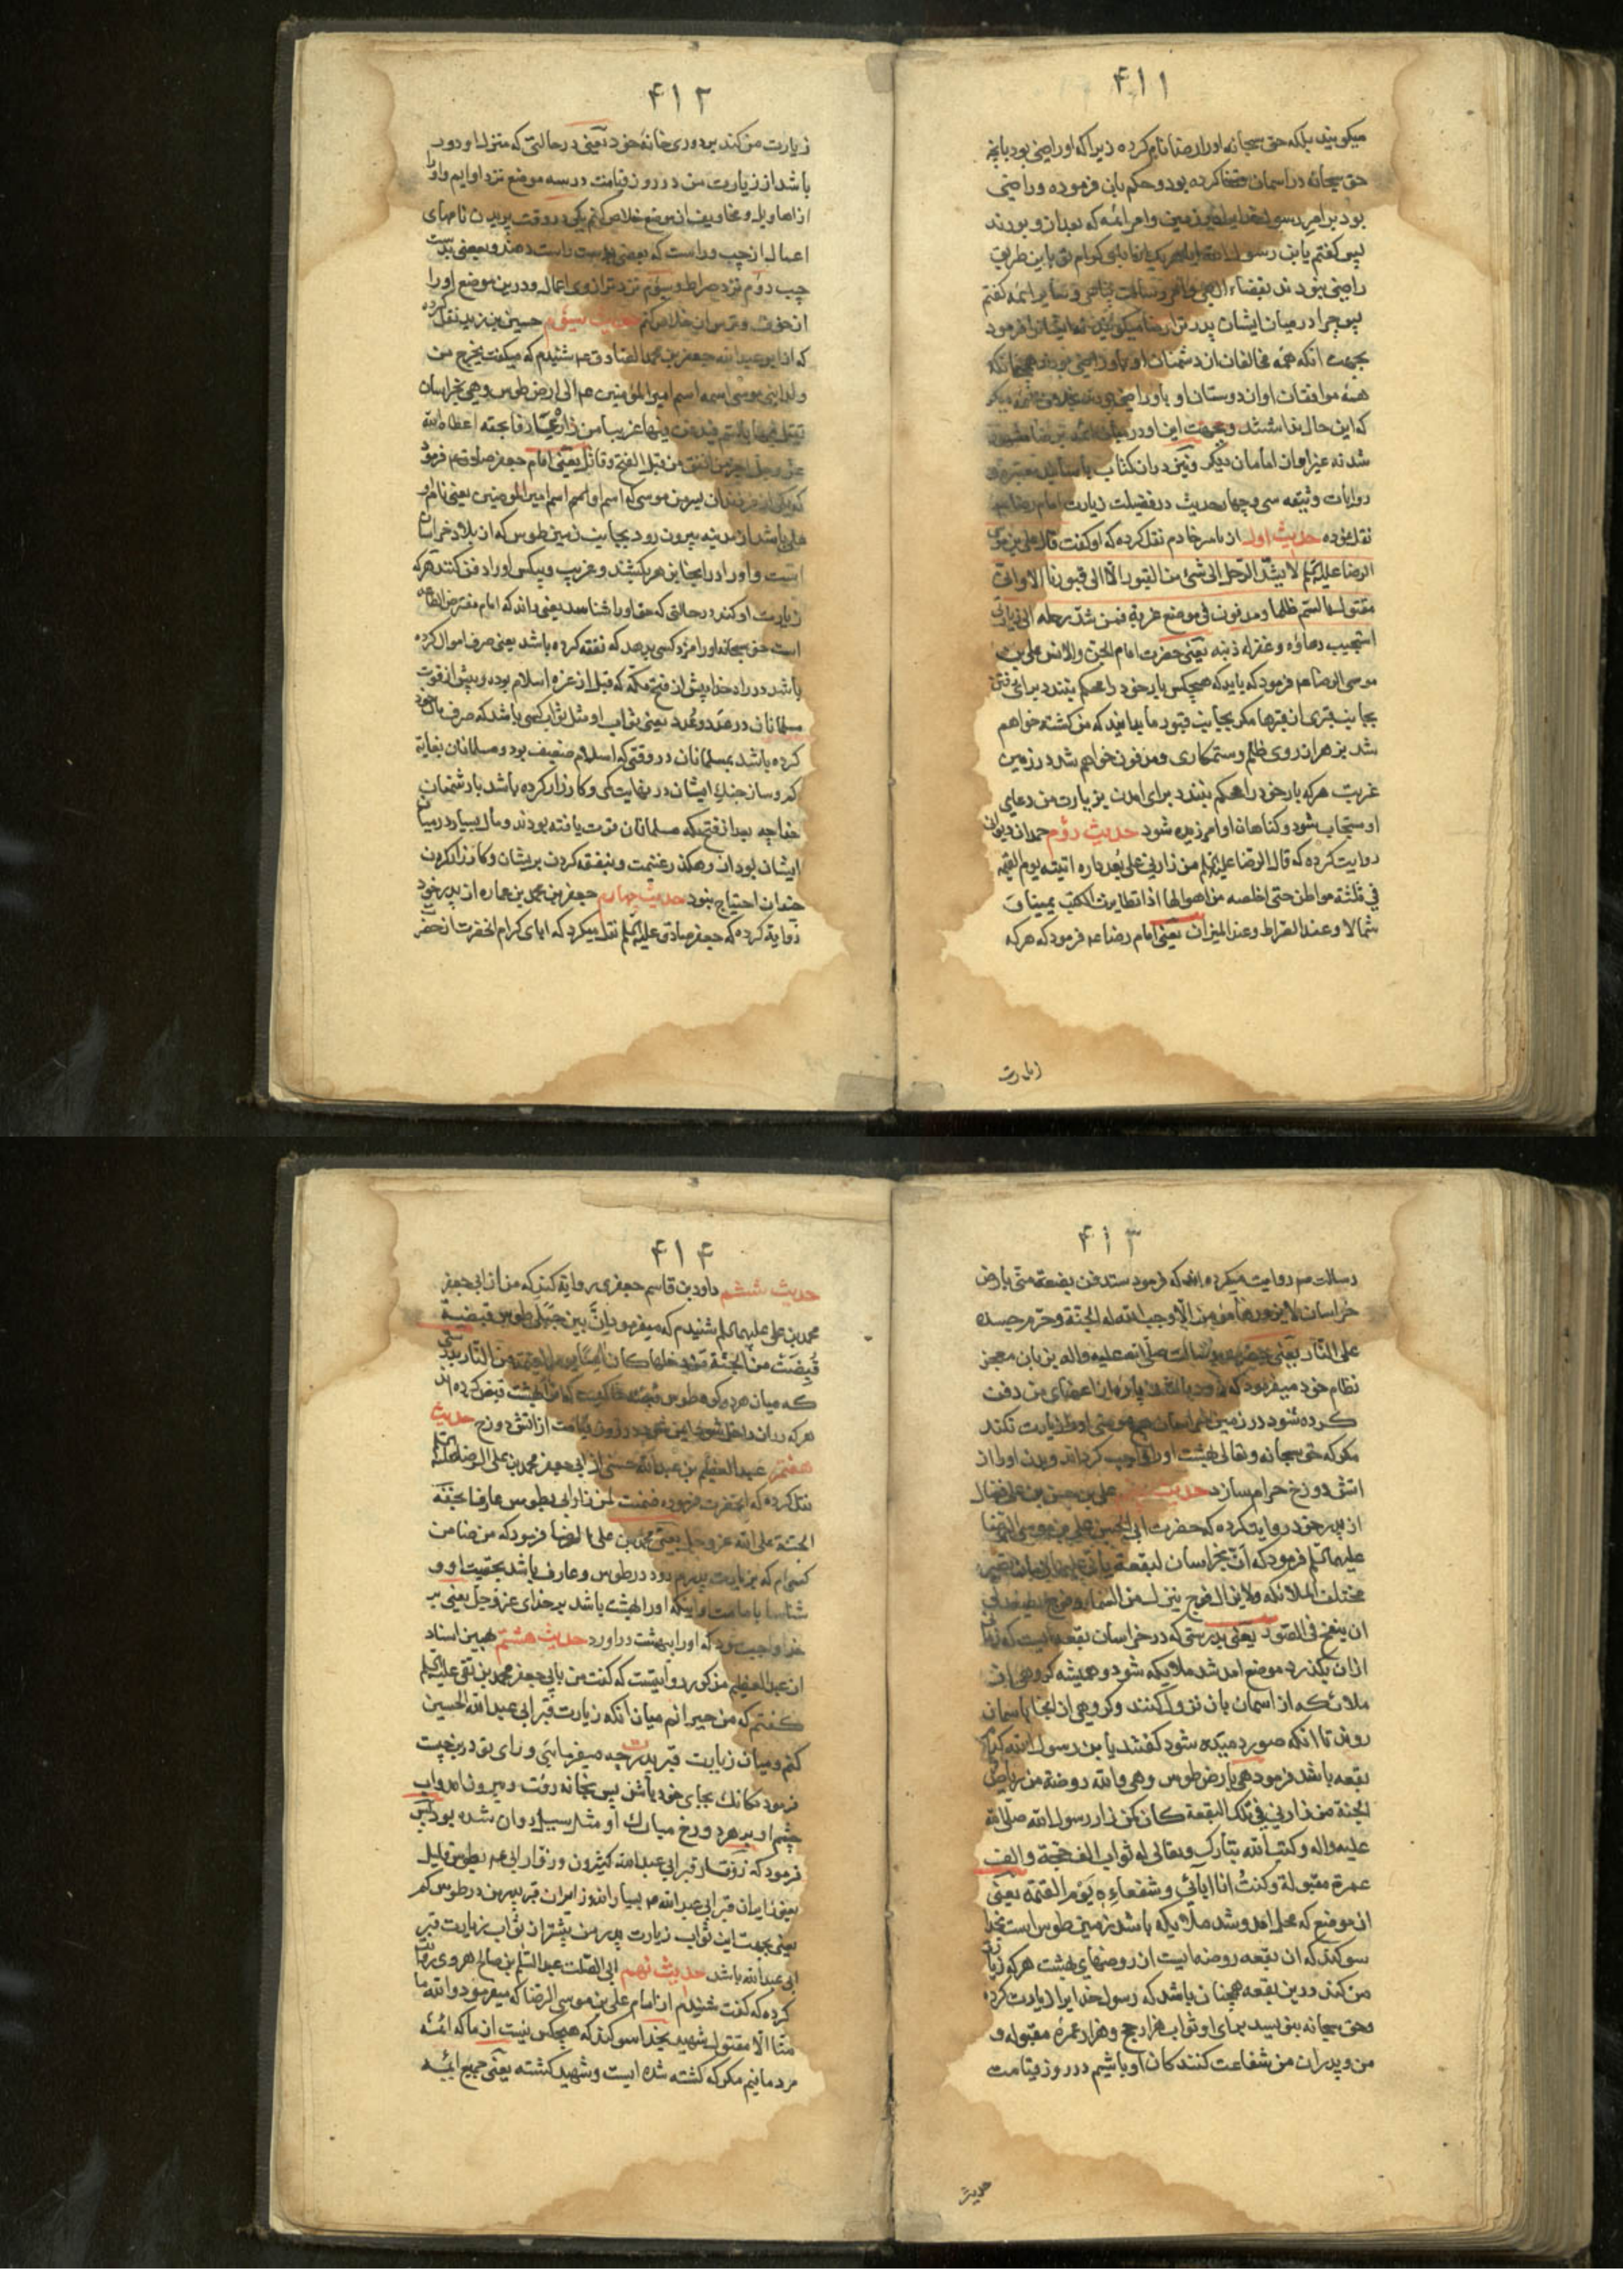 ۴۱۱
میکویند بلکه حق سبحانه اورا رضا نام کرده زیرا که او راضی بود بانچه
حق سبحانه در اسمان قضا کرده بود و حکم بان فرموده و راضی
بود برای رسول خدا در زمین و امر ائمه که بعد از و بودند
پس کفتم یابن رسول الله ایا هر یک از ابای کرام تو باین طریق
راضی نبودند بقضاء الهی و امر رسالت پناهی و سایر ائمه کفتم
پس چرا در میان ایشان پدر ترا رضا میکویند نه ایشانرا فرمود
بجهت انکه همه مخالفان از دشمنان او باو راضی بودند همچنانکه
همه موافقان او از دوستان او باو راضی بودند
که این حال نداشتند و بجهت این او در میان ائمه برضا مشهور
شد نه غیر او از امامان دیکر و نیز در ان کتاب باسانید معتبره و
روایات وثیقه سی و چهار حدیث در فضیلت زیارت امام رضا
نقل نموده حدیث اول از یاسر خادم نقل کرده که او کفت قال علی بن موسی
الرضا علیه السلم لا یشد الرحل الی شئ من القبور الا الی قبورنا الا وانی
مقتول بالسم ظلما ومدفون فی موضع غربة فمن شد رحله الی زیارتی
استجیب دعاؤه وغفر له ذنبه یعنی حضرت امام الجن والانس علی بن
موسی الرضا عم فرمود که باید که هیچکس بار خود را محکم نبندد برای رفتن
بجانب قبری از قبرها مکر بجانب قبور ما بدانید که من کشته خواهم
شد بزهر از روی ظلم و ستمکاری و مدفون خواهم شد در زمین
غربت هر که بار خود را محکم ببندد برای امدن بزیارت من دعای
او مستجاب شود و کناهان او امرزیده شود حدیث دوم حمدان دیوانی
روایت کرده که قال الرضا علیه السلم من زارنی علی بعد داره اتیته یوم القیمة
فی ثلثة مواطن حتی اخلصه من اهوالها اذا تطایرت الکتب یمینا و
شمالا وعند الصراط وعند المیزان یعنی امام رضا عم فرمود که هر که
۴۱۲
زیارت من کند بر دوری خانه خود یعنی در حالتی که منزل او دور
باشد از زیارت من در روز قیامت در سه موضع نزد او ایم و او را
از اهاویل و مخاویف ان موضع خلاص کنم یکی در وقت پریدن نامهای
اعمال از چپ و راست که بعضی بدست راست دهند و بعضی بدست
چپ دوم نزد صراط و سیوم نزد ترازوی اعمال و درین موضع او را
از خوف و ترس ان خلاص کنم حدیث سیوم حسین بن زید نقل کرده
که از ابو عبدالله جعفر بن محمد الصادق عم شنیدم که میکفت یخرج من
ولد ابنی موسی اسمه اسم امیر المؤمنین عم الی ارض طوس وهی بخراسان
یقتل فیها بالسم فیدفن فیها غریبا من زاره عارفا بحقه اعطاه الله
عز وجل اجر من انفق من قبل الفتح وقاتل یعنی امام جعفر صادق عم فرمود
که یکی از فرزندان پسر من موسی که اسم او اسم امیر المومنین یعنی نام او
علی باشد از مدینه بیرون رود بجانب زمین طوس که از بلاد خراسان
است و او را در انجا بزهر بکشند و غریب و بیکس او را دفن کنند هر که
زیارت او کند در حالتی که حق او را شناسد یعنی داند که امام مفترض الطاعه
است حق سبحانه او را مزد کسی بدهد که نفقه کرده باشد یعنی صرف اموال کرده
باشد در راه خدا پیش از فتح مکه که قبل از عزه اسلام بوده و پیش از قوت
مسلمانان در عدد و عُدد یعنی ثواب او مثل ثواب کسی باشد که صرف مال خود
کرده باشد بمسلمانان در وقتی که اسلام ضعیف بود و مسلمانان بغایة
کم و ساز جنک ایشان در نهایت کمی و کارزار کرده باشد با دشمنان
خدا چه بعد از فتح مکه مسلمانان قوت یافته بودند و مال بسیار در میان
ایشان بود از رهکذر غنیمت و بنفقه کردن بریشان و کارزار کردن
چندان احتیاج نبود حدیث چهارم جعفر بن محمد بن عماره از پدر خود
روایة کرده که جعفر صادق علیه السلم نقل میکرد که ابای کرام انحضرت از حضرت
رسالت
۴۱۳
رسالت عم روایت میکرده اند که فرمود ستدفن بضعة منی بارض
خراسان لا یزورها مؤمن الا اوجب الله له الجنة وحرم جسده
علی النار یعنی حضرت رسالت صلی الله علیه واله بزبان معجز
نظام خود میفرمود که زود باشد که پاره از اعضای من دفن
کرده شود در زمین خراسان هیچ مؤمنی او را زیارت نکند
مکر که حق سبحانه و تعالی بهشت او را واجب کرداند و بدن او را از
اتش دوزخ حرام سازد حدیث پنجم علی بن حسن بن علی فضال
از پدر خود روایت کرده که حضرت ابی الحسن علی بن موسی الرضا
علیهما السلم فرمود که ان بخراسان لبقعة یأتی علیها زمان تصیر
مختلف الملائکه ولا یزال فوج ینزل من السماء وفوج یصعد الی
ان ینفخ فی الصور یعنی بدرستی که در خراسان بقعه ایست که زمانی
از ان بکذرد موضع امد شد ملایکه شود و همیشه کروهی از
ملائکه از اسمان بان نزول کنند و کروهی از انجا باسمان
روند تا انکه صور دمیده شود کفتند یا بن رسول الله کدام
بقعه باشد فرمود هی بارض طوس وهی والله روضة من ریاض
الجنة من زارنی فی تلک البقعة کان کمن زار رسول الله صلی الله
علیه واله وکتب الله تبارک وتعالی له ثواب الف حجة والف
عمرة مقبولة وکنتُ انا وابائی شفعاءه یوم القیمة یعنی
ان موضع که محل امد و شد ملایکه باشد زمین طوس است بخدا
سوکند که ان بقعه روضه ایست از روضهای بهشت هر که زیارت
من کند در ین بقعه همچنان باشد که رسول خدایرا زیارت کرده
و حق سبحانه بنویسد برای او ثواب هزار حج و هزار عمرهٔ مقبوله و
من و پدران من شفاعت کنندکان او باشیم در روز قیامت
حدیث
۴۱۴
حدیث ششم داود بن قاسم جعفری روایة کند که من از ابی جعفر
محمد بن علی علیهما السلم شنیدم که میفرمود ان بین جبلی طوس قبضة
قُبِضَت من الجنة من دخلها کان امنا یوم القیمة من النار بدرستی
که میان دو کوه طوس قبضه خاکیست که از بهشت قبض کرده اند
هر که در ان داخل شود ایمن شود در روز قیامت از اتش دوزخ حدیث
هفتم عبد العظیم بن عبدالله حسنی از ابی جعفر محمد بن علی الرضا علیه السلم
نقل کرده که انحضرت فرموده ضمنت لمن زار ابی بطوس عارفا بحقه
الجنة علی الله عز وجل یعنی محمد بن علی الرضا فرمود که من ضامن
کسی ام که بزیارت پدرم رود در طوس و عارف باشد بحقیت او و
شناسا بامامت او باینکه او را بهشت باشد بر خدای عز وجل یعنی بر
خدا واجب بود که او را ببهشت در اورد حدیث هشتم بهمین اسناد
از عبد العظیم مذکور روایتست که کفت من بابی جعفر محمد بن تقی علیه السلم
کفتم که من حیرانم میان انکه زیارت قبر ابی عبدالله الحسین
کنم و میان زیارت قبر پدرت چه میفرمائی و رای تو درین چیست
فرمود مکانک بجای خود باش پس بخانه رفت و بیرون امد و اب
چشم او بر هر دو رخ مبارک او مثل سیل روان شده بود پس
فرمود که زوّار قبر ابی عبدالله کثیرون وزوّار ابی عم بطوس قلیل
یعنی زایران قبر ابی عبدالله عم بسیار اند و زایران قبر پدر من در طوس کم
یعنی بجهت این ثواب زیارت پدر من بیشتر از ثواب زیارت قبر
ابی عبدالله باشد حدیث نهم ابی الصلت عبد السلم بن صالح هروی روایت
کرده که کفت شنیدم از امام علی بن موسی الرضا که میفرمود والله ما
منا الا مقتول شهید بخدا سوکند که هیچکس نیست از ما که ائمهٔ
مردمانیم مکر که کشته شده ایست و شهید کشته یعنی جمیع ائمه